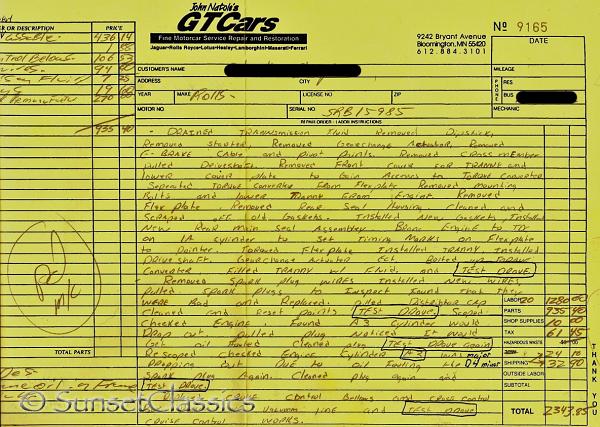 John Natole's
GTCars
Fine Motorcar Service Repair and Restoration
Jaguar•Rolls Royce•Lotus•Healey•Lamborghini•Maserati•Ferrari
9242 Bryant Avenue
Bloomington, MN 55420
612.884.3101
No 9165
DATE
OR DESCRIPTION PRICE
436 14
1 88
106 53
94 00
7 25
19 00
270 00
935 40
CUSTOMER'S NAME
ADDRESS CITY
YEAR MAKE Rolls- LICENSE NO ZIP
MOTOR NO SERIAL NO. SRB15985
MILEAGE
PHONE RES. BUS
MECHANIC
REPAIR ORDER - LABOR INSTRUCTIONS
- DRAINED TRANNSmission Fluid Removed Dipstick,
Removed starter, Removed Gearchange Actuator, Removed
E-BRAKE Cable and pivot points. Removed CROSS mEmber
Pulled Driveshaft. Removed Front cover FOR TRANNY and
lower cover plate to Gain Access to Torque Converter
Seperated TORQUE Converter From Flexplate Removed mounting
Bolts and lowered Tranny From Engine Removed
Flex Plate Removed Rear Seal Housing Cleaned and
Scraped off old Gaskets. Installed New Gaskets Installed
New Rear Main Seal Assembley. Broke Engine to TDC
on 1A cylinder to Set Timing Marks on Flexplate
to Pointer. Torqued Flexplate Installed TRANNY Installed
Drive shaft, Gearchange Actuator Ect. Bolted up TORQUE
Converter Filled TRANNY w/ Fluid, and TEST DROVE.
- Removed Spark plug wires Installed New wires
Pulled Spark Plugs to Inspect Found that they
WERE Bad and Replaced. pulled Distributor CAP
Cleaned and Reset points TEST DROVE Scoped
Checked Engine Found A3 Cylinder would
Drop out pulled plug Noticed it would
Get oil fouled cleaned plug TEST DROVE Again
Rescoped checked Engine Cylinder A3 was major
Dropping out Due to oil Fouling the 04 minor
Spark plug Again. Cleaned plug again and
TEST DROVE
CRUISE Control Bellows and cruise control
Vacuum line and TEST DROVE
CRUISE CONTROL WORKS.
LABOR 20 1280 00
PARTS 935 40
SHOP SUPPLIES 10 00
TAX 61 45
HAZARDOUS WASTE
24 10
SHIPPING 32 90
OUTSIDE LABOR
SUBTOTAL
TOTAL 2343.85
THANK YOU
Pd
TOTAL PARTS
© SunsetClassics